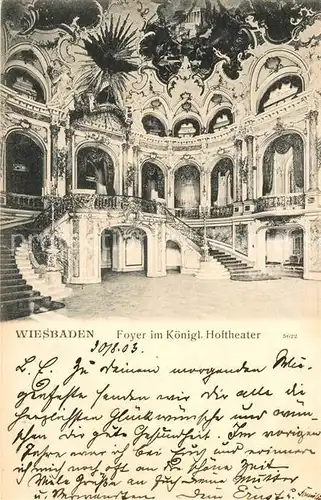 WIESBADEN Foyer im Königl. Hoftheater 5622
20/8.03.
L. E. Zu Deinem morgenden Wie-
genfeste senden wir Dir alle die
herzlichsten Glückwünsche und wün-
schen Dir gute Gesundheit. Im vorigen
Jahre waren wir bei Euch und erinnere
ich mich noch oft an die schöne Zeit
Viele Grüße an Dich Deine Mutter
u.